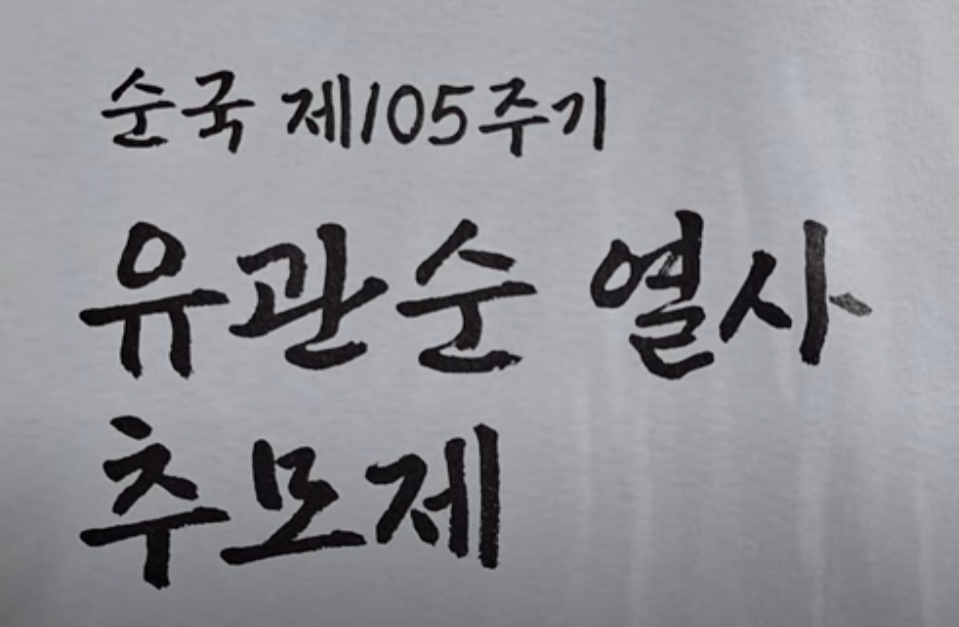 순국 제105주기
유관순 열사
추모제